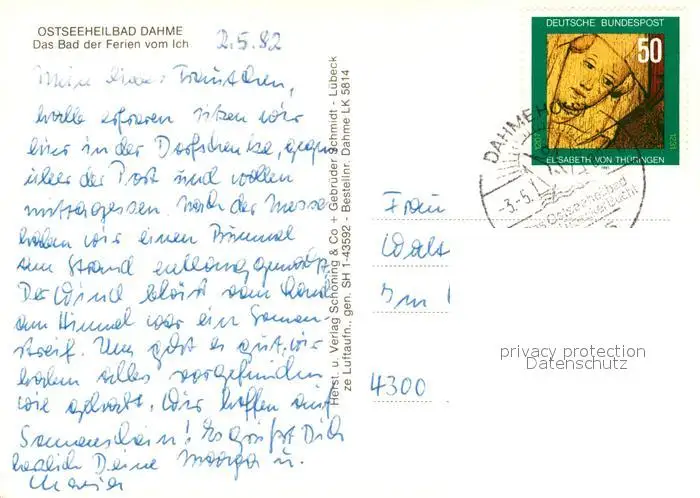 OSTSEEHEILBAD DAHME
Das Bad der Ferien vom Ich
2.5.82
Meine liebe Frauchen,
halb erfroren sitzen wir
hier in der Dorfschenke, gegen
über der Post und wollen
mittagessen. Nach der Messe
haben wir einen Bummel
am Strand entlang gemacht.
Der Wind bläst vom Land
am Himmel war ein Sonnen-
streif. Uns geht es gut, wir
haben alles vorgefunden
wie gehabt. Wir hoffen auf
Sonnenschein! Es grüßt Dich
herzlich Deine Marga u.
Maria
Herst. u. Verlag Schöning & Co + Gebrüder Schmidt - Lübeck
ze Luftaufn., gen. SH 1-43592 - Bestellnr. Dahme LK 5814
DEUTSCHE BUNDESPOST
50
1207
1231
ELISABETH VON THÜRINGEN
DAHMEHO
-3.-5.
Das Ostseeheilbad
Lübecker Bucht
Frau
Walt
Im
4300
privacy protection
Datenschutz